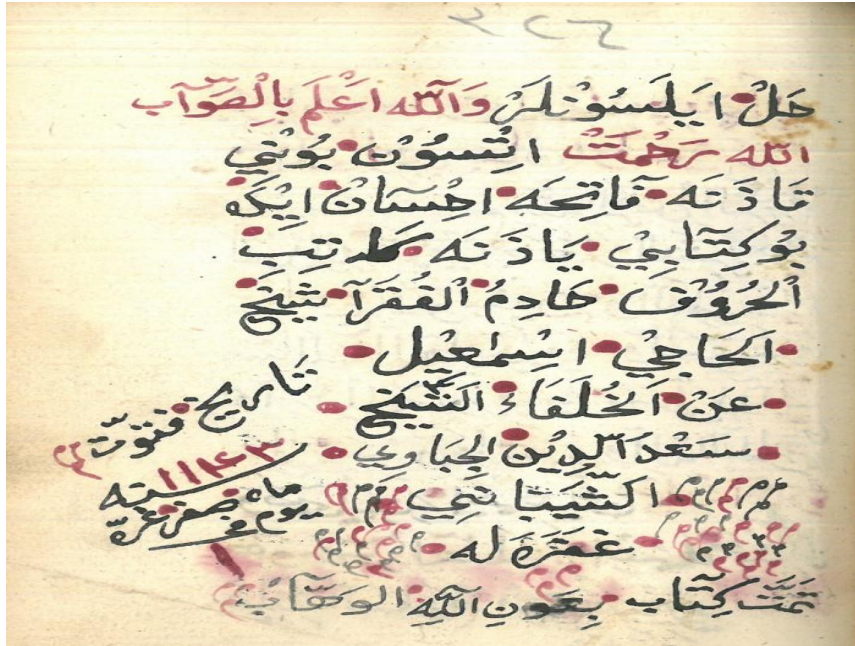 ٣٢٦
حَلْ اَيلَسُوْنلَرْ وَاَللّٰه اَعْلَم بِالْصَوَآب
اللّٰه رَحْمَتْ اتْسُوْن بُوْنِي
قَاذَنَه فَاتِحَه اِحْسَانْ ايْدَه
بُوكِتَابِيْ يَاذَنَه كاتِبْ
اَلْحُرُوْفْ خَادِمُ اَلْفُقَرَآ شَيْخْ
اَلحَاجِيْ اِسْمٰعِيْل
عَنْ اَلْخُلَفَاءُ اَلشَّيْخْ
سَعْدَ اَلدِيْن الْجَبَاوِي
اَلشَّيْبَانِي
غَفَرَهَ لَه
تَمَّتْ كِتَاب بِعَونِ اَللّٰهِ الوَهَّآبْ
تاريخ
سنه ١١٤٣
ماه صفر غرّه
يوم
١